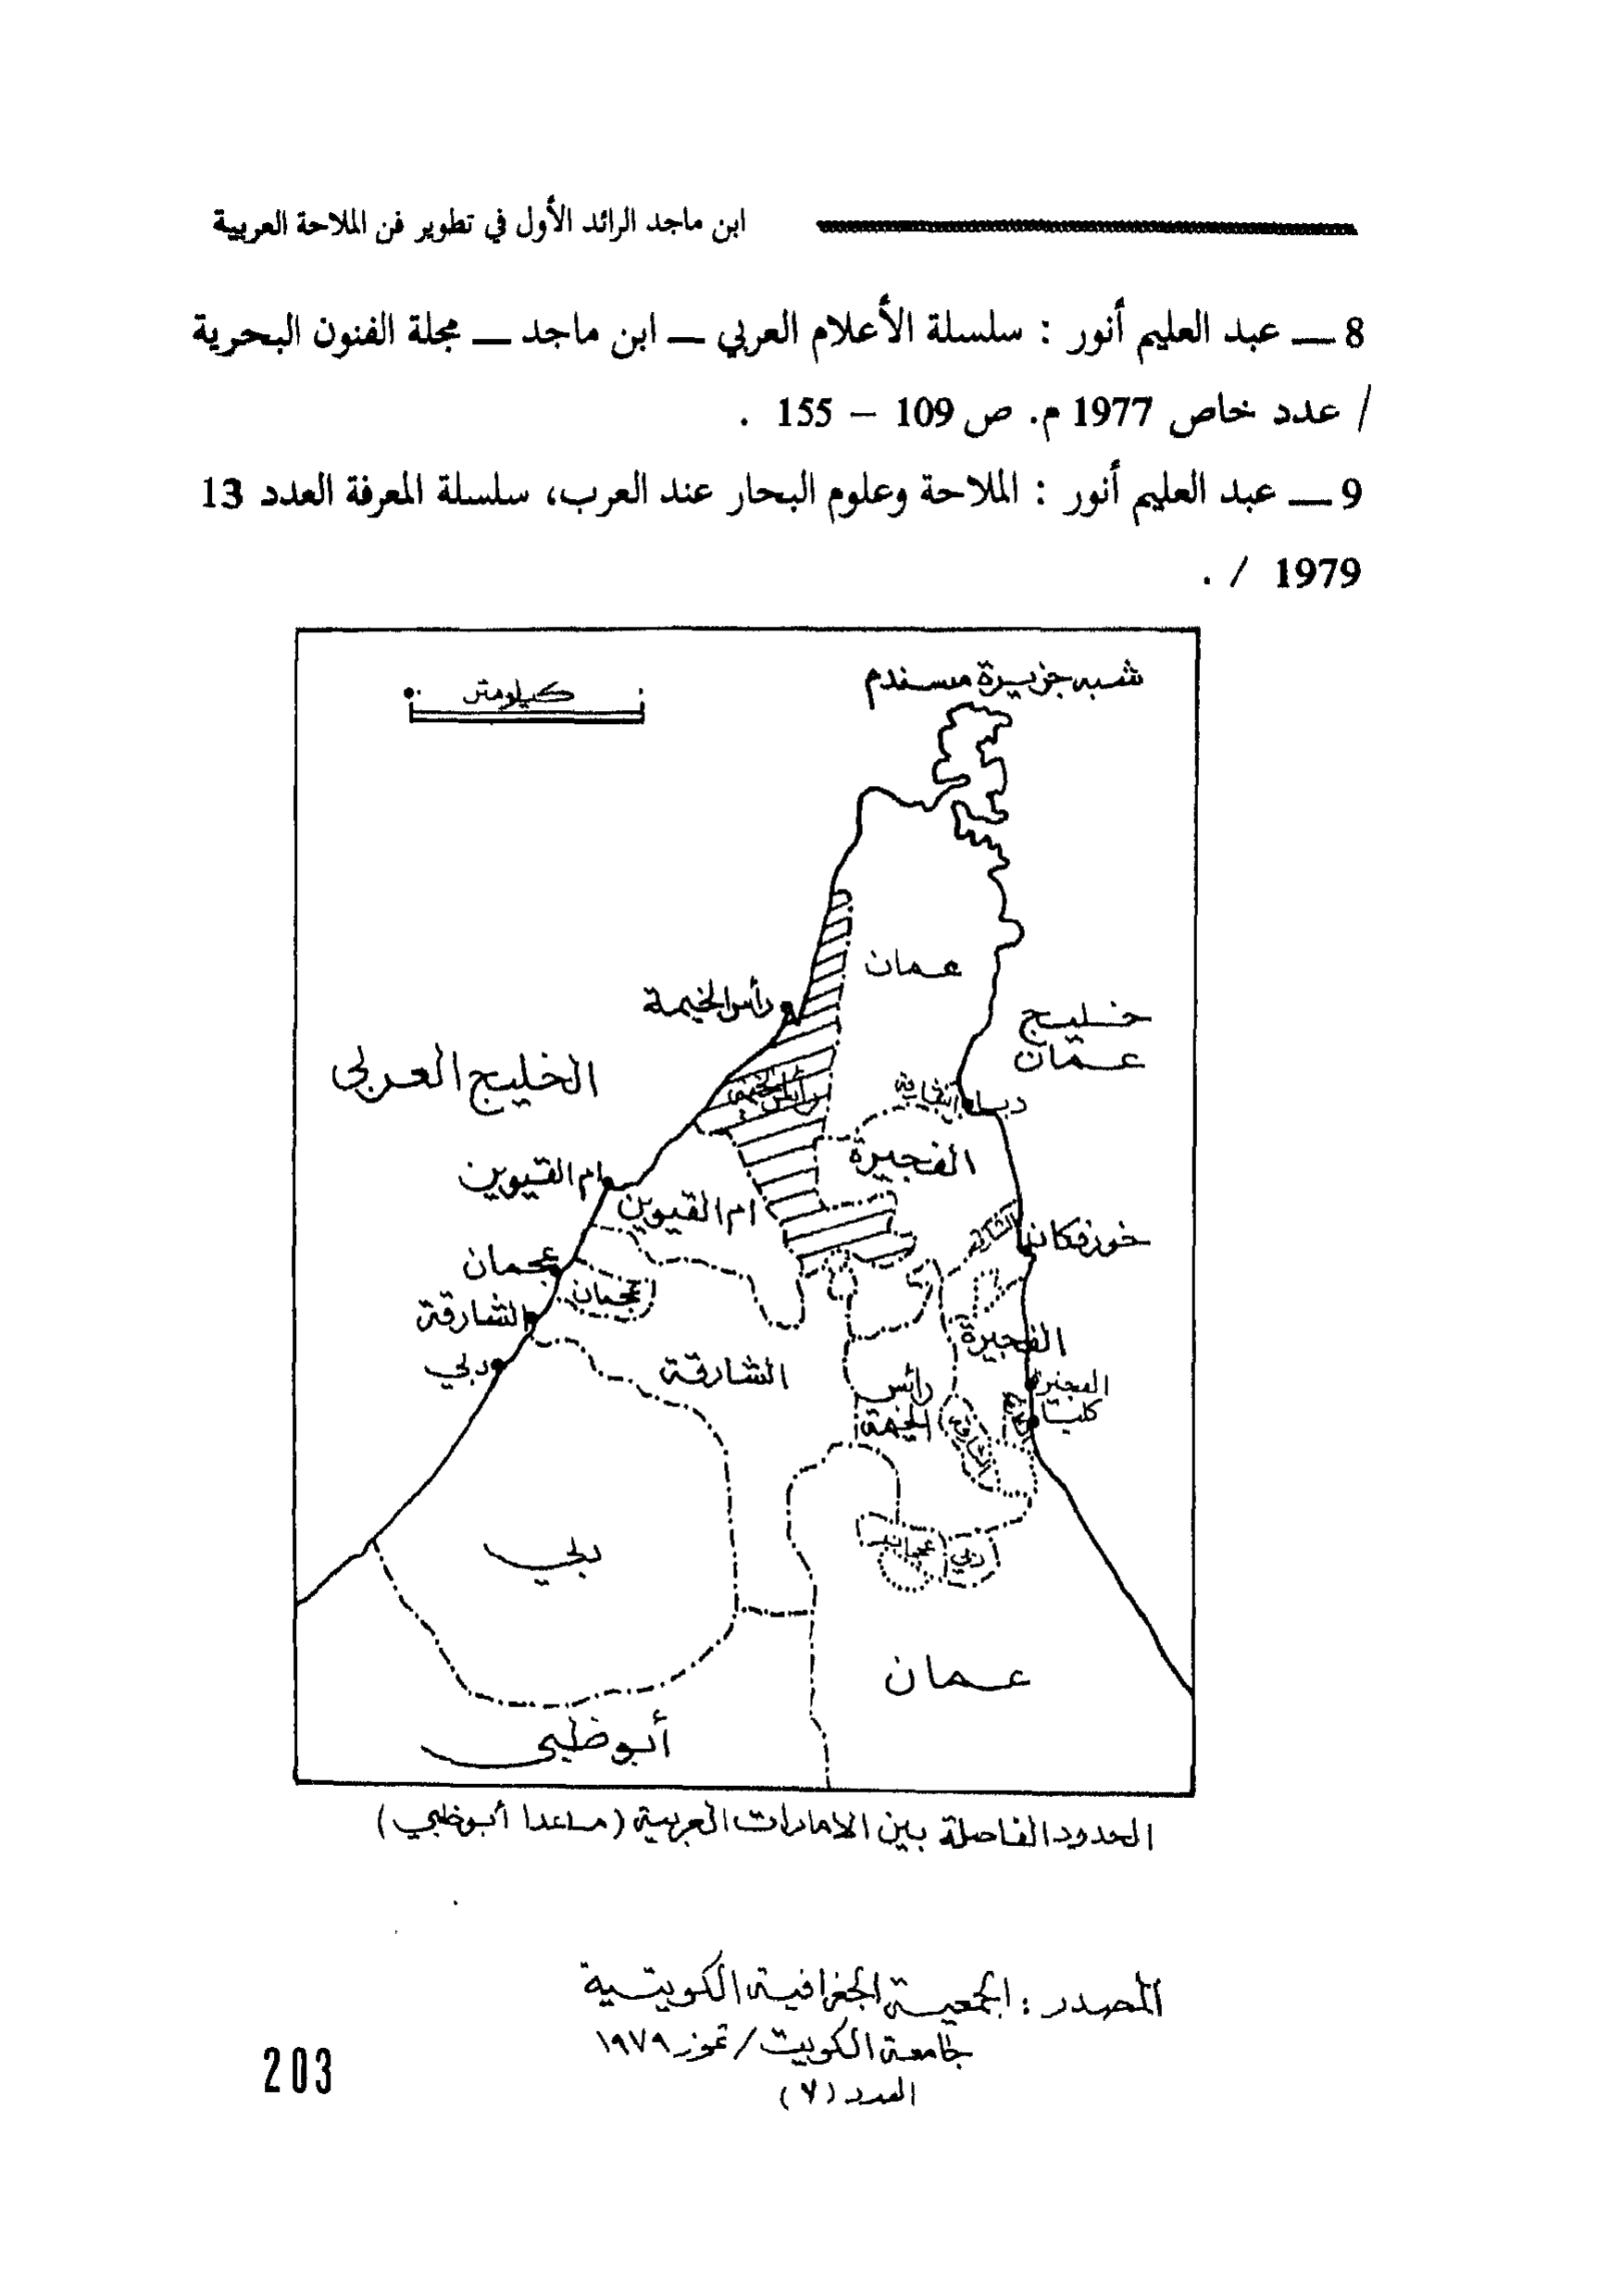 ابن ماجد الرائد الأول في تطوير فن الملاحة العربية
8 — عبد العليم أنور : سلسلة الأعلام العربي — ابن ماجد — مجلة الفنون البحرية
/ عدد خاص 1977 م. ص 109 – 155 .
9 — عبد العليم أنور : الملاحة وعلوم البحار عند العرب، سلسلة المعرفة العدد 13
1979 / .
شبه جزيرة مسندم
كيلومتر
عمان
رأس الخيمة
خليج
عمان
الخليج العربي
رأس الخيمة
دبا
الفجيرة
ام القيوين
ام القيوين
خورفكان
عجمان
عجمان
الشارقة
الفجيرة
دبي
الشارقة
رائس
الخيمة
الفجيرة
كلبا
الشارقة
دبي
عجمان
دبي
عمان
أبوظبي
الحدود الفاصلة بين الامارات العربية (ماعدا أبوظبي)
المصدر : الجمعية الجغرافية الكويتية
جامعة الكويت / تموز ١٩٧٩
العدد (٧)
203